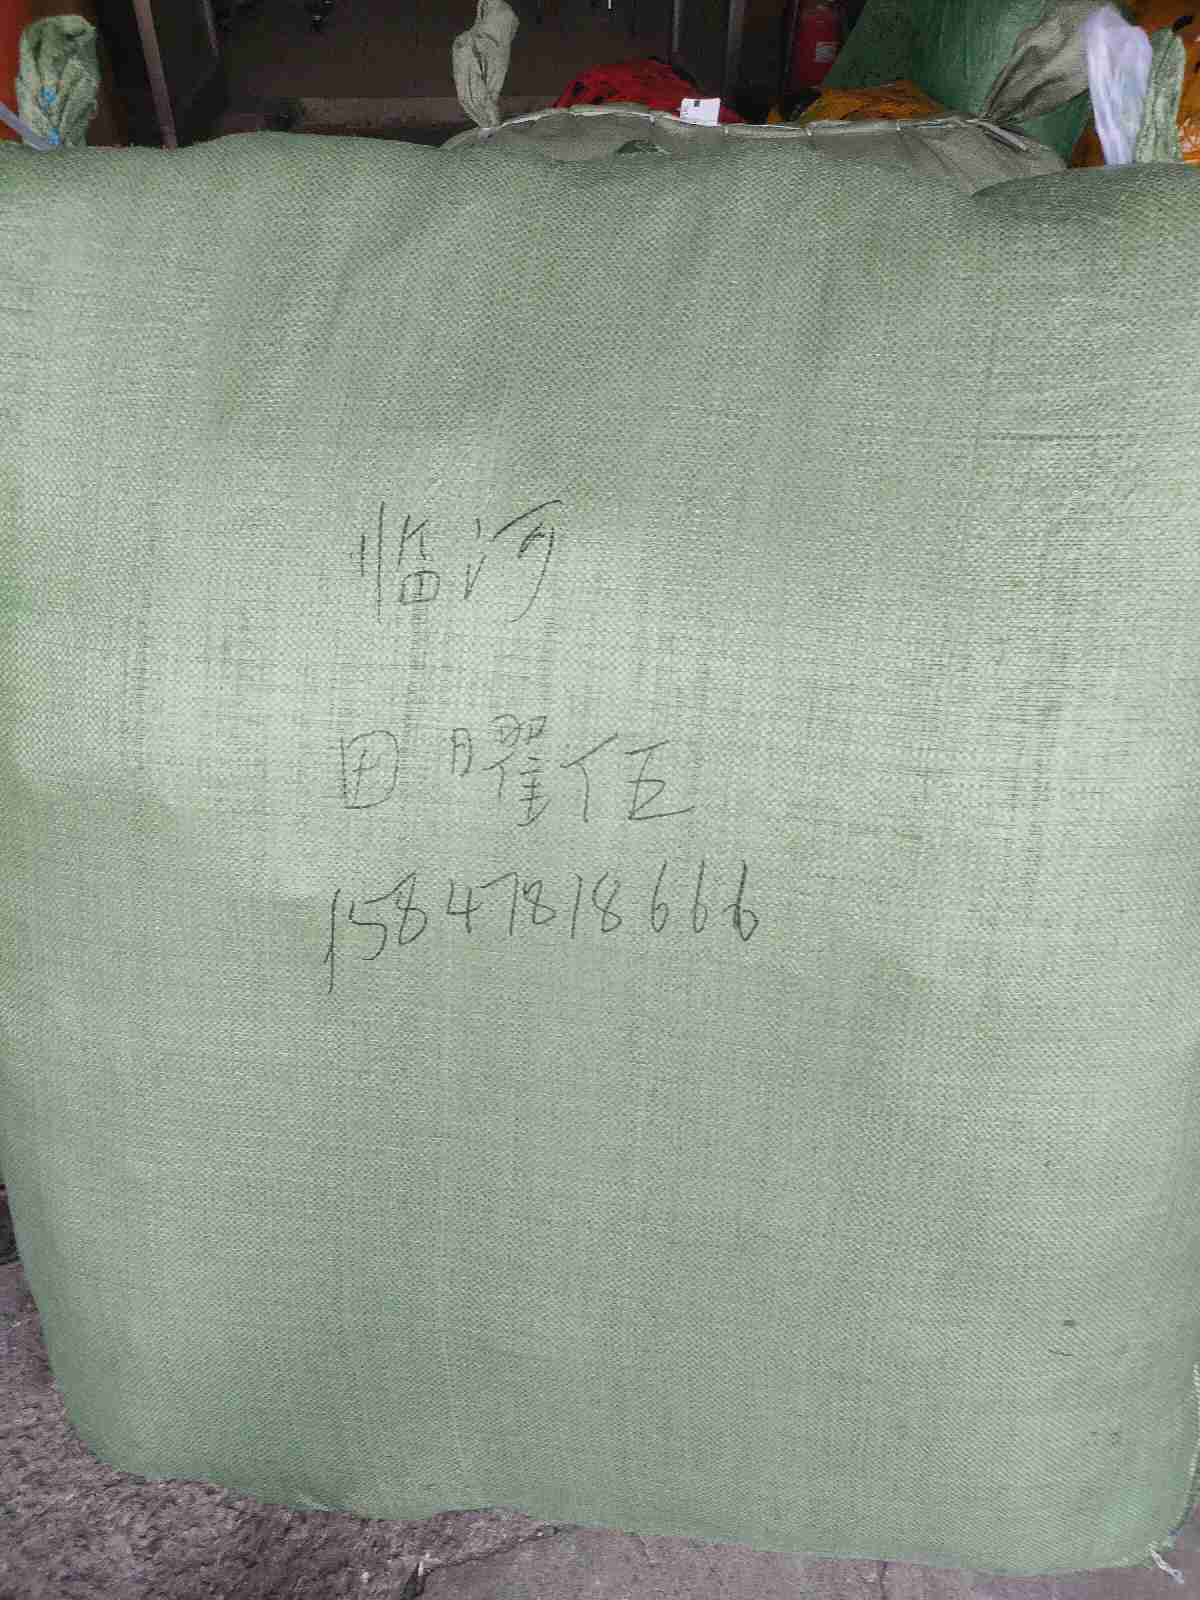 临河
田曜伍
15847818666